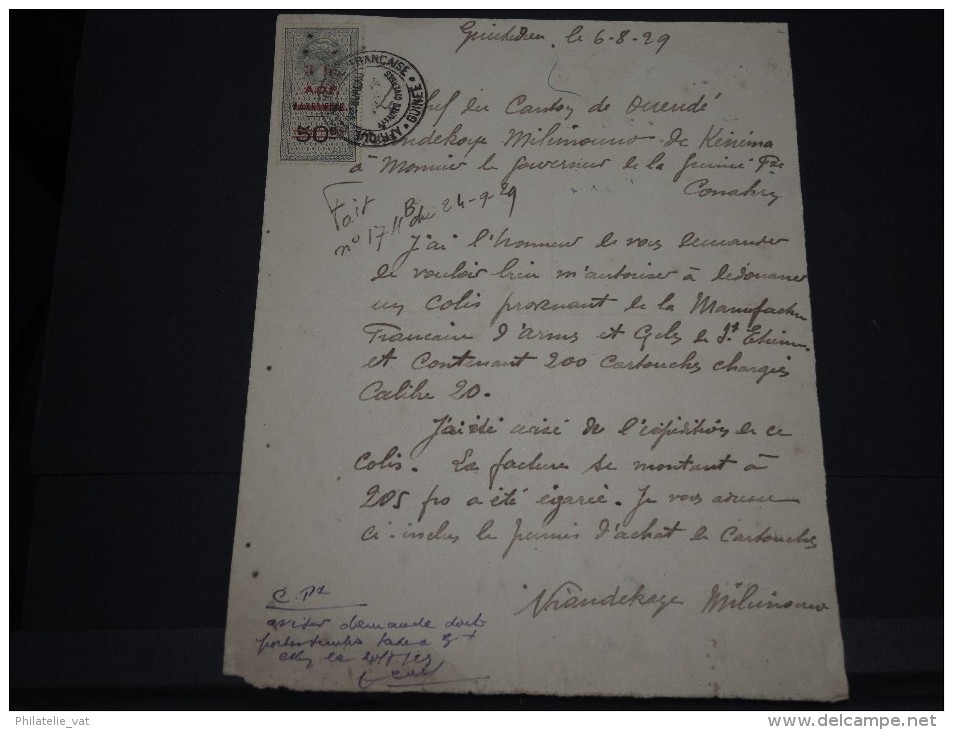 le 6-8-29
A.O.F.
50c
AFRIQUE FRANÇAISE * GUINÉE *
du Canton de Ouendé
Milimouno de Kénéma
à Monsieur le Gouverneur de la Guinée Fse
Conakry
Fait
n° 17 du 24-9-29
J'ai l'honneur de vous demander
de vouloir bien m'autoriser à dédouaner
un colis provenant de la Manufacture
Française d'Armes et Cycles de St Etienne
et contenant 200 cartouches chargées
Calibre 20.
J'ai été avisé de l'expédition de ce
colis. La facture se montant à
205 frs a été égarée. Je vous adresse
ci-inclus le permis d'achat de cartouches
Milimouno
demande
Philatelie_vat
delcampe.net